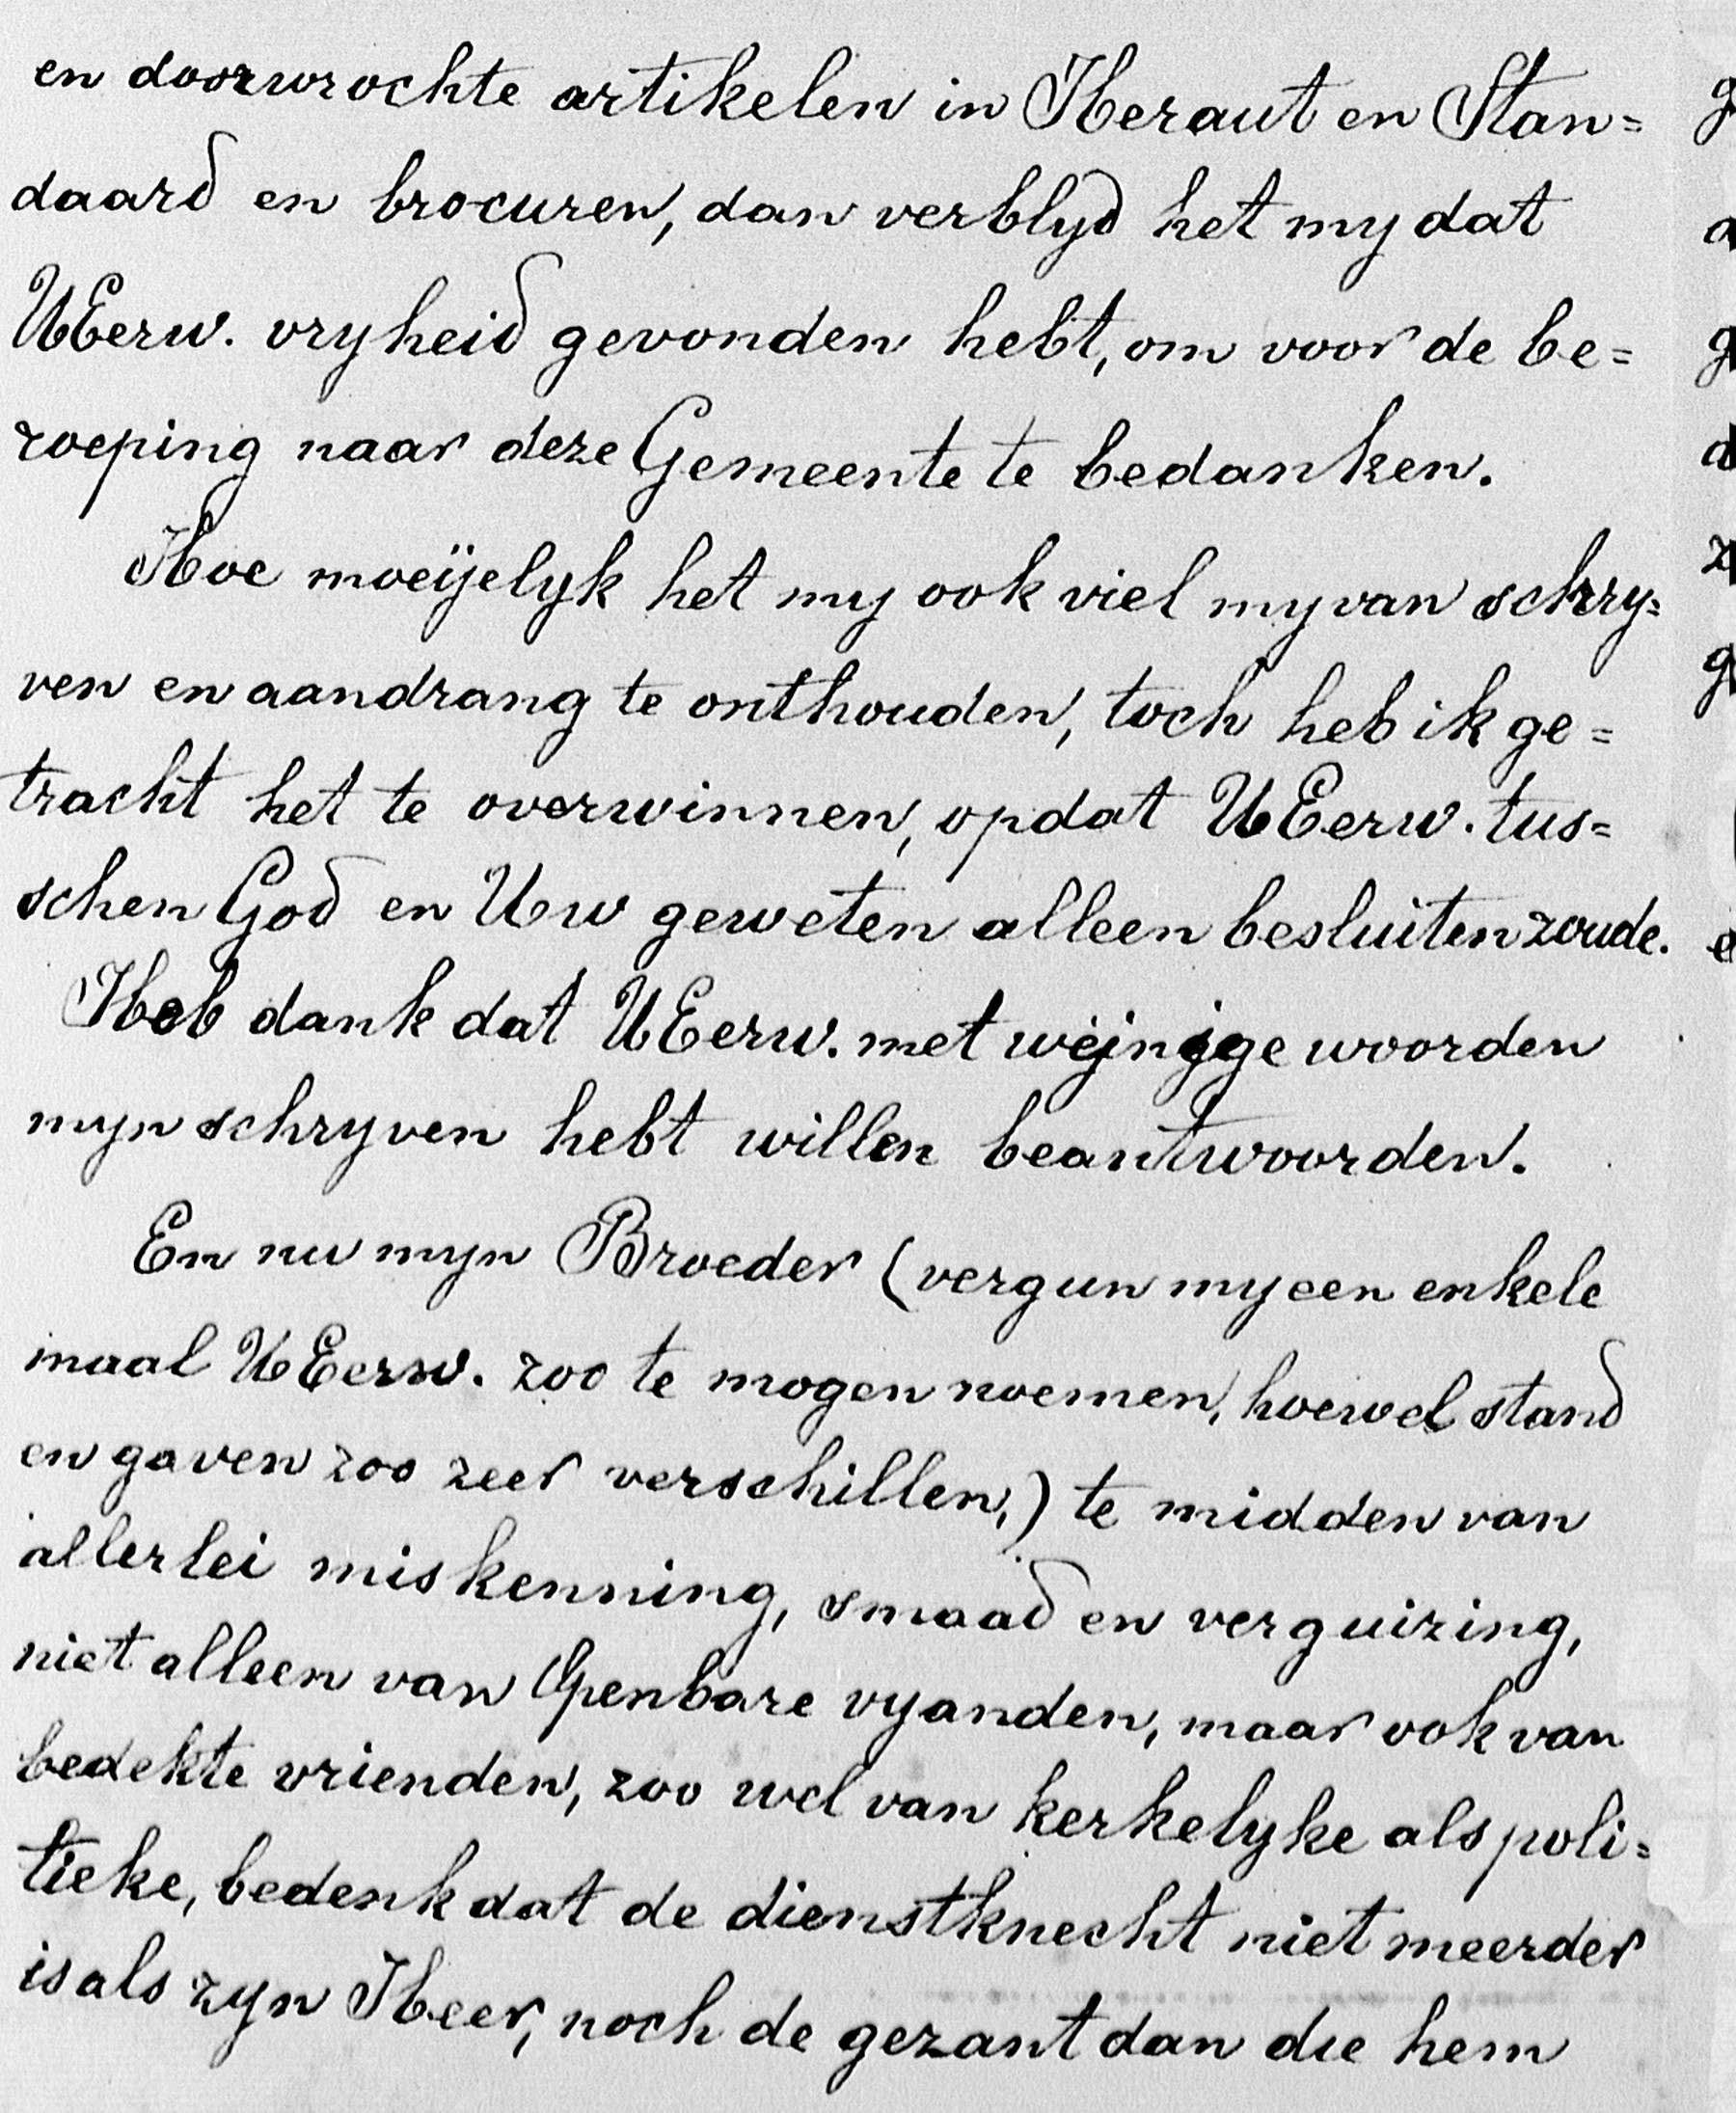 en doorwrochte artikelen in Heraut en Stan=
daard en brocuren, dan verblyd het my dat
UEerw. vryheid gevonden hebt, om voor de be=
roeping naar deze Gemeente te bedanken.
Hoe moeÿelyk het my ook viel my van schry=
ven en aandrang te onthouden, toch heb ik ge=
tracht het te overwinnen, opdat UEerw. tus=
schen God en Uw geweten alleen besluiten zoude.
Heb dank dat UEerw. met weinige woorden
myn schryven hebt willen beantwoorden.
En nu myn Broeder (vergun my een enkele
maal UEerw. zoo te mogen noemen, hoewel stand
en gaven zoo zeer verschillen,) te midden van
allerlei miskenning, smaad en verguizing,
niet alleen van Openbare vyanden, maar ook van
bedekte vrienden, zoo wel van kerkelyke als poli=
tieke, bedenk dat de dienstknecht niet meerder
is als zyn Heer, noch de gezant dan die hem